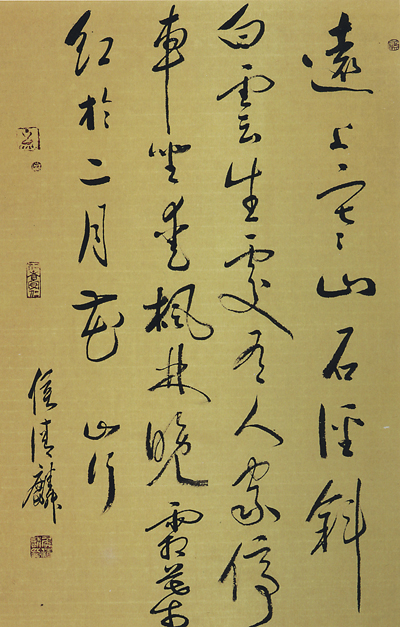 遠上寒山石徑斜
白雲生處有人家停
車坐愛楓林晚霜葉
紅於二月花 山行
侯清麟